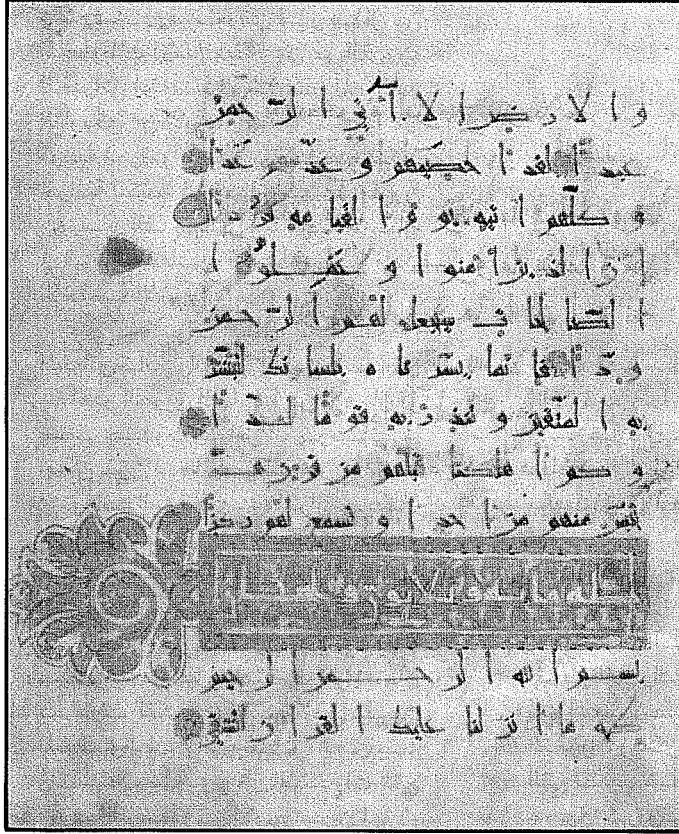 والارض الا اتي الرحمن
عبدا لقد احصيهم وعدهم عدا
وكلهم اتيه يوم القيامه فردا
ان الذين امنوا وعملوا
الصالحات سيجعل لهم الرحمن
ودا فانما يسرناه بلسانك لتبشر
به المتقين وتنذر به قوما لدا
وكم اهلكنا قبلهم من قرن هل
تحس منهم من احد او تسمع لهم ركزا
بسم الله الرحمن الرحيم
طه ما انزلنا عليك القران لتشقى